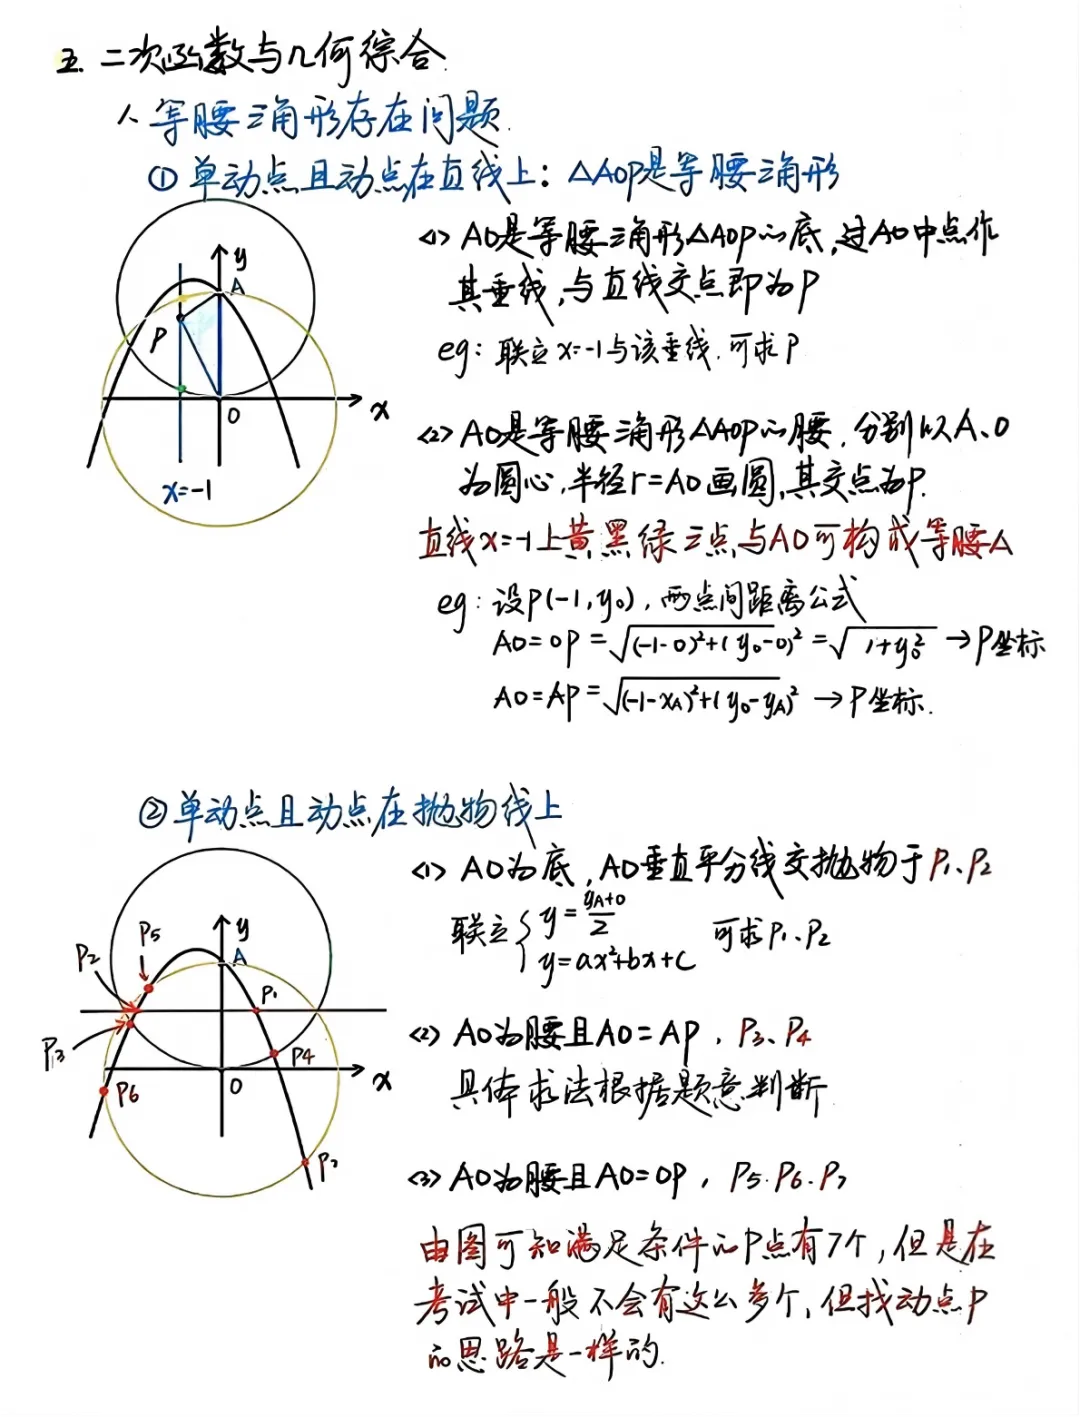 五. 二次函数与几何综合
1、等腰三角形存在问题.
① 单动点且动点在直线上: △AOP是等腰三角形
y
A
P
O
x
x=-1
<1> AO是等腰三角形△AOP的底,过AO中点作
其垂线,与直线交点即为P
eg: 联立x=-1与该垂线.可求P
<2> AO是等腰三角形△AOP的腰,分别以A、O
为圆心,半径r=AO画圆,其交点为P.
直线x=-1上黄黑绿三点与AO可构成等腰△
eg: 设P(-1,y₀),两点间距离公式
AO=OP=√(-1-0)²+(y₀-0)²=√1+y₀² →P坐标
AO=AP=√(-1-xA)²+(y₀-yA)² →P坐标.
②单动点且动点在抛物线上
y
A
P5
P2
P1
P3
P4
O
x
P6
P7
<1> AO为底,AO垂直平分线交抛物于P₁、P₂
联立{y=(yA+0)/2
y=ax²+bx+c
可求P₁、P₂
<2> AO为腰且AO=AP,P₃、P₄
具体求法根据题意判断
<3> AO为腰且AO=OP,P₅.P₆.P₇
由图可知满足条件的P点有7个,但是在
考试中一般不会有这么多个,但找动点P
的思路是一样的.